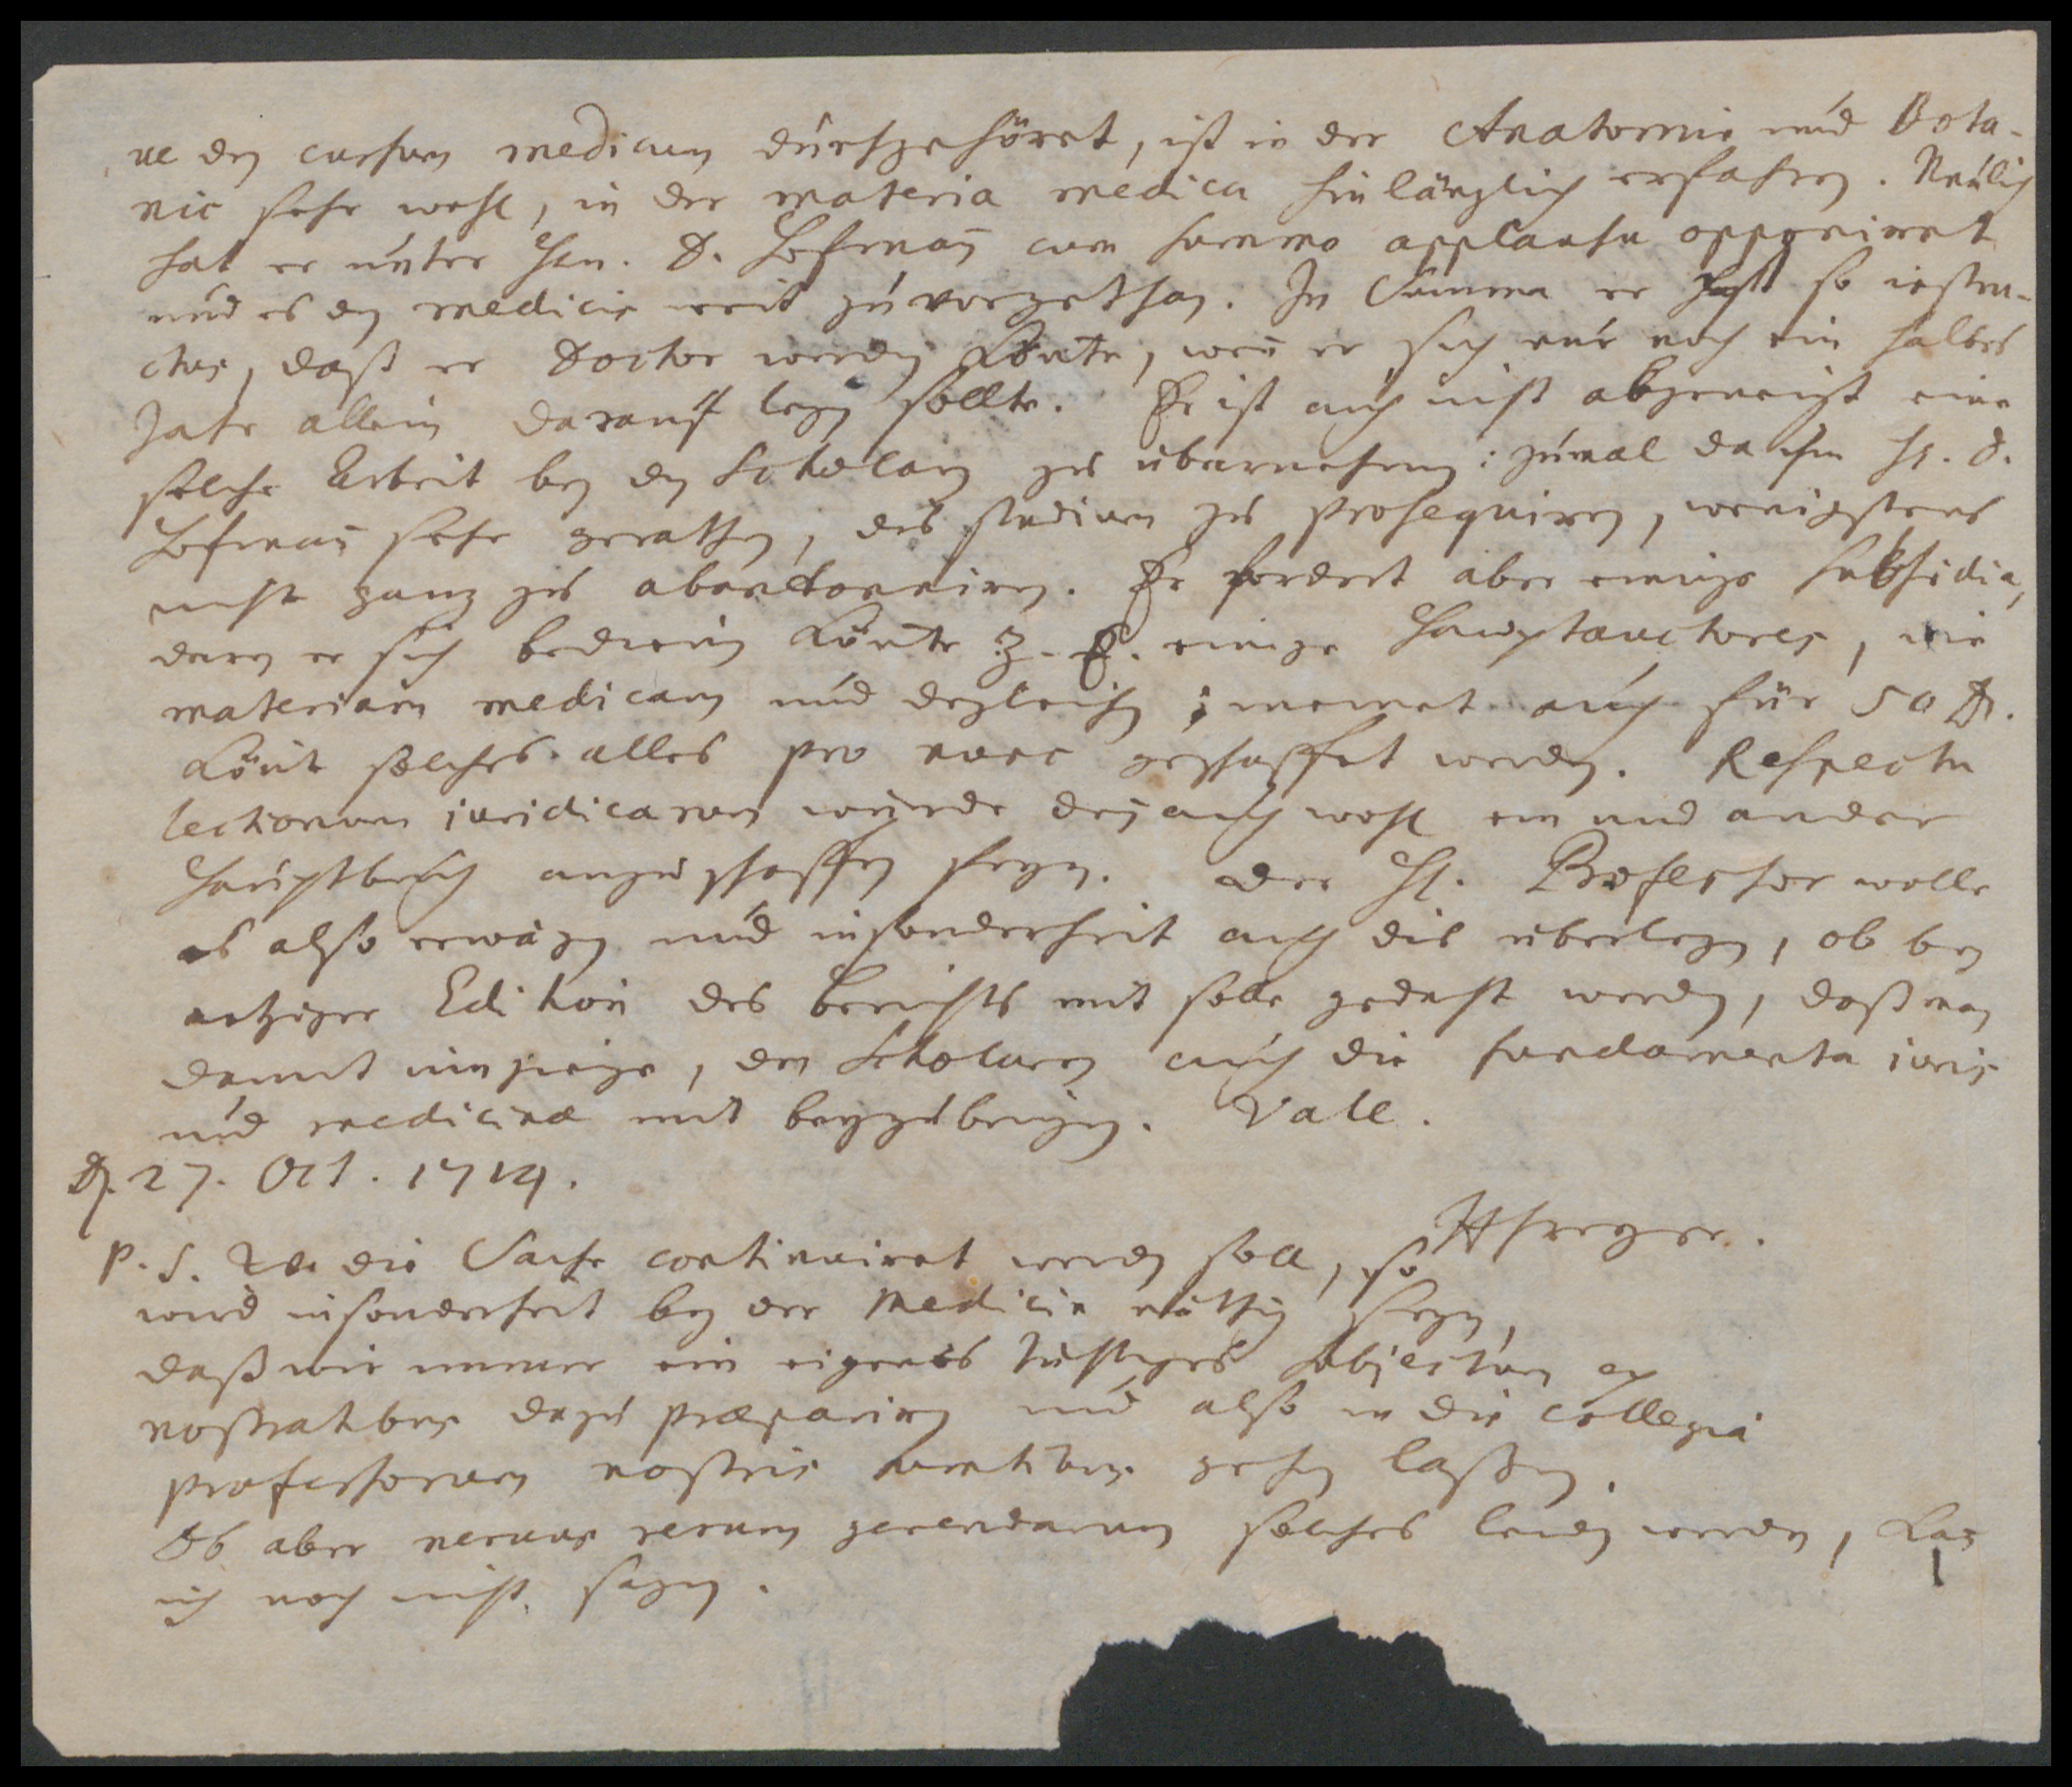 ue den cursum medicum durchgehöret, ist in der Anatomie und Bota-
nic sehr wohl, in der materia medica hinlänglich erfahren. Neulich
hat er unter Hrn. D. Hofman cum summo applausu opponiret
und es den medicis weit zuvorgethan. In Summa er ist so instru-
ctus, daß er Doctor werden könte, wen er sich nur noch ein halbes
Jahr allein darauf legen sollte. Er ist auch nicht abgeneigt eine
solche Arbeit bey den Scholaren zu übernehmen: zumal da ihm H. D.
Hofman sehr gerathen, das studium zu prosequiren, wenigstens
nicht ganz zu abandonniren. Er fordert aber einige subsidia,
deren er sich bedienen könte z. E. einige Hauptauctores, die
materiam medicam und dergleichen; meinet auch für 50 Thlr.
könte solches alles pro nunc geschaffet werden. Respectu
lectionum iuridicarum würde den auch wohl ein und ander
Hauptbuch anzuschaffen seyn. Der H. Professor wolle
es also erwägen und insonderheit auch dis überlegen, ob bey
ietziger Edition des Berichts mit solle gedacht werden, daß man
damit umgienge, den Scholaren auch die fundamenta iuris
und medicinae mit beyzubringen. Vale.
D. 27. Oct. 1714.
HFreyer.
P. S. Wo die Sache continuiret werden soll, so
wird insonderheit bey der Medicin nöthig seyn,
daß wir immer ein eigenes tüchtiges subjectum ex
nostratibus dazu praepariren und also in die collegia
professorum nostris sumtibus gehen laßen.
Ob aber nervus rerum gerendarum solches leiden werde, kan
ich noch nicht sagen.